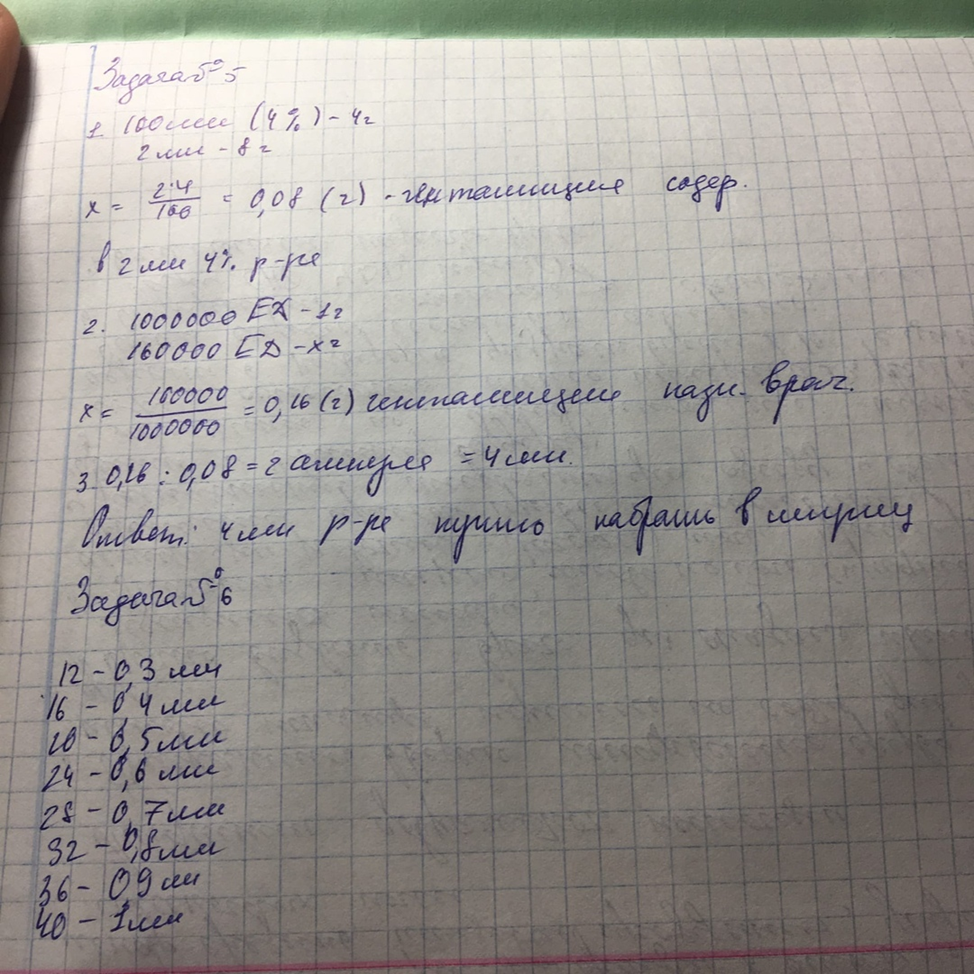 Задача №5
1. 100мл (4%) - 4г
2 мл - 8 г
x = 2·4/100 = 0,08 (г) - гентамицина содер.
в 2 мл 4% р-ра
2. 1000000 ЕД - 1г
160000 ЕД - x г
x = 160000/1000000 = 0,16 (г) гентамицина назн. врач.
3. 0,16 : 0,08 = 2 ампулы = 4 мл.
Ответ: 4 мл р-ра нужно набрать в шприц
Задача №6
12 - 0,3 мл
16 - 0,4 мл
20 - 0,5 мл
24 - 0,6 мл
28 - 0,7 мл
32 - 0,8 мл
36 - 0,9 мл
40 - 1 мл